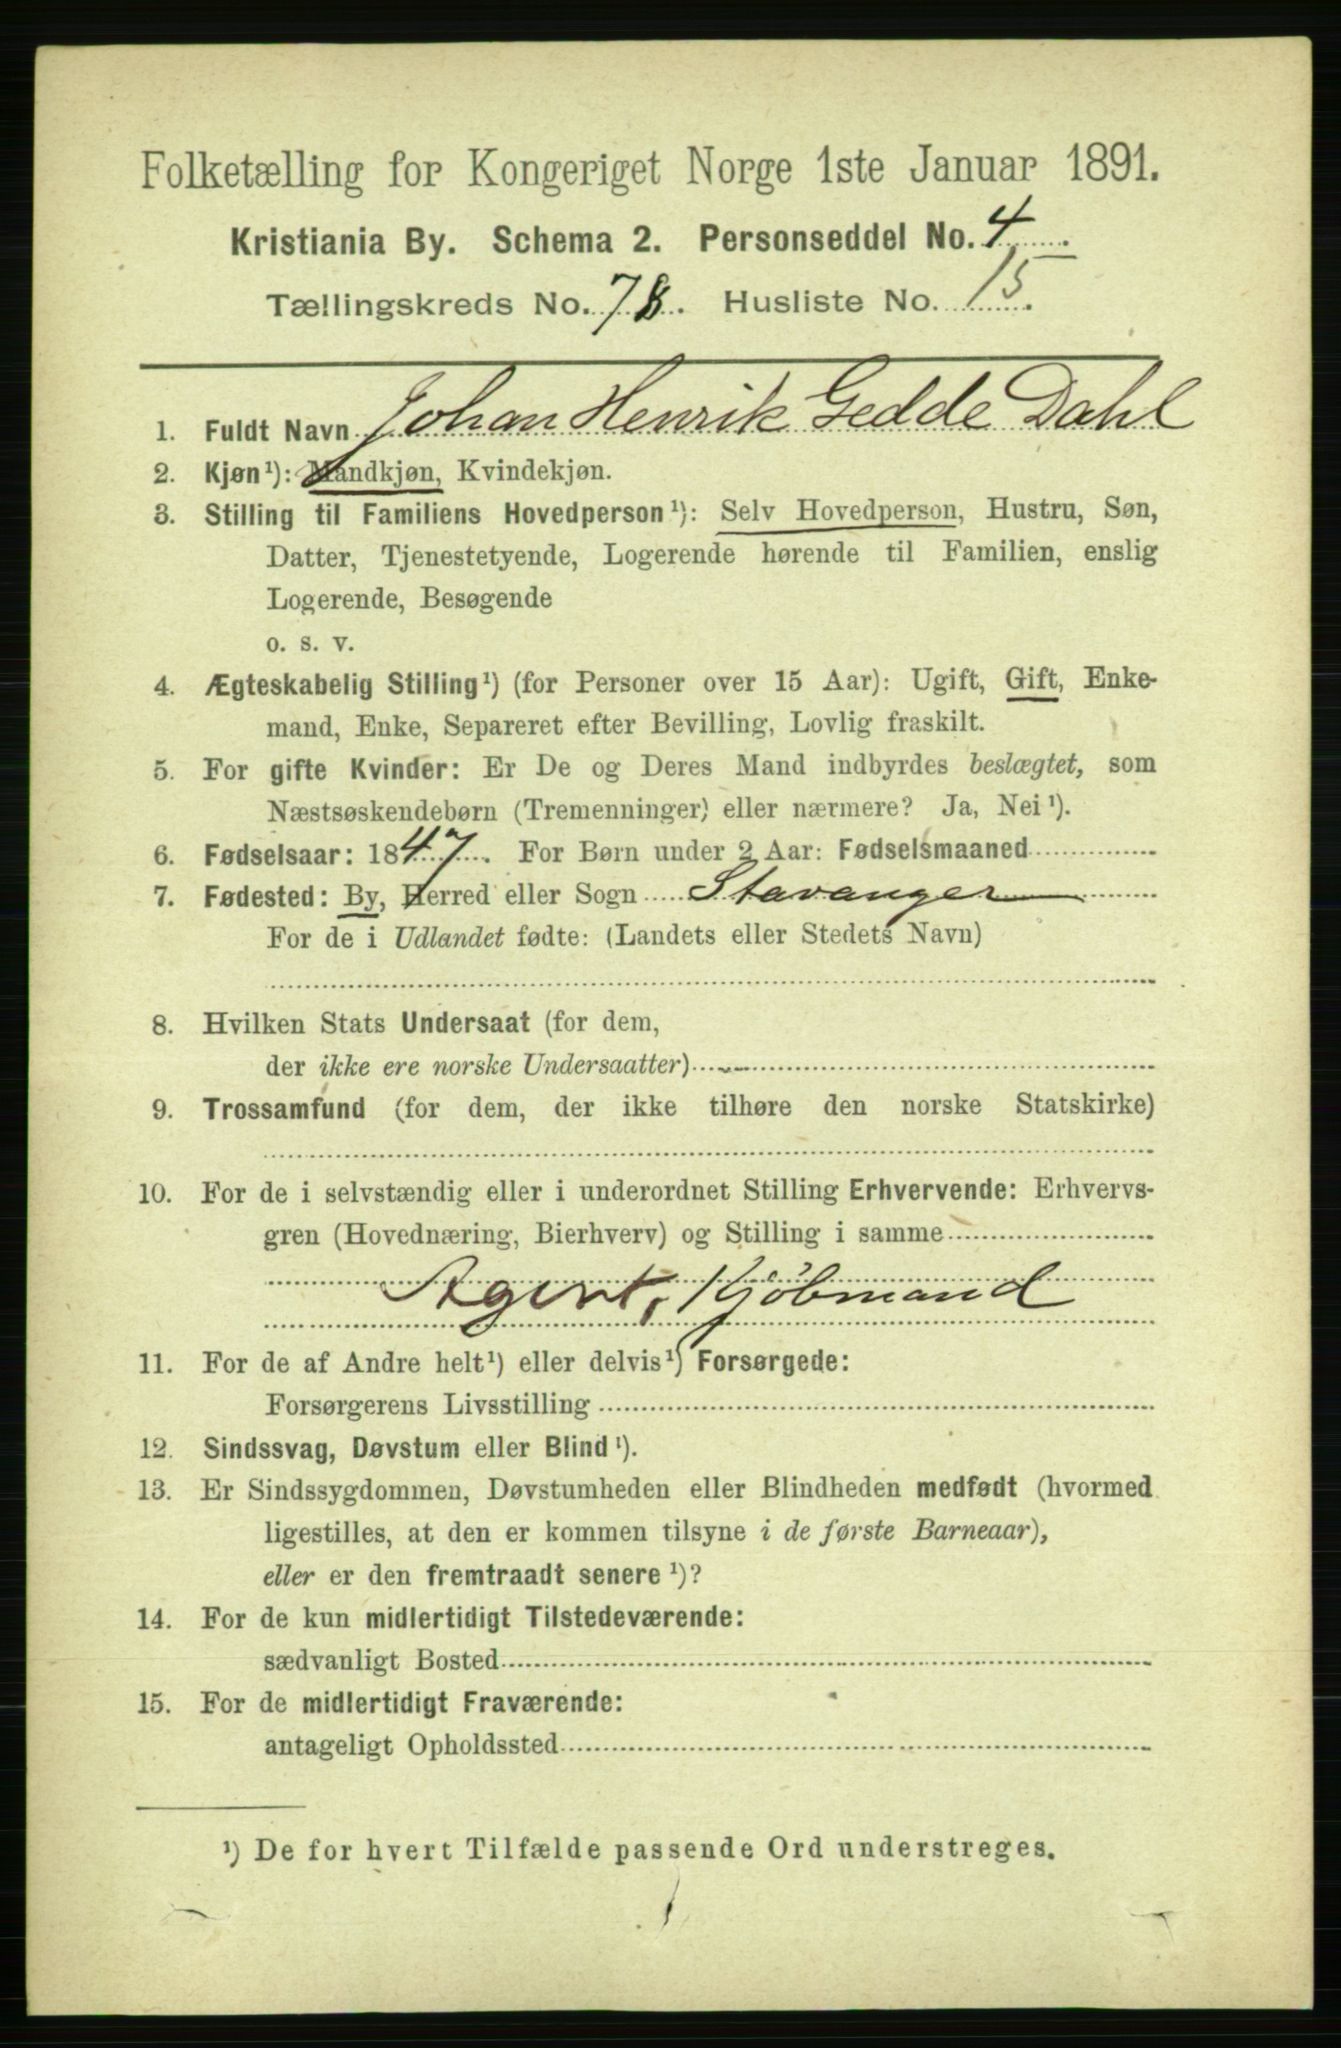 Folketælling for Kongeriget Norge 1ste Januar 1891.
Kristiania By. Schema 2. Personseddel No. 4
Tællingskreds No. 78. Husliste No. 15.
1. Fuldt Navn Johan Henrik Gedde Dahl
2. Kjøn¹): Mandkjøn, Kvindekjøn.
3. Stilling til Familiens Hovedperson¹): Selv Hovedperson, Hustru, Søn,
Datter, Tjenestetyende, Logerende hørende til Familien, enslig
Logerende, Besøgende
o. s. v.
4. Ægteskabelig Stilling¹) (for Personer over 15 Aar): Ugift, Gift, Enke-
mand, Enke, Separeret efter Bevilling, Lovlig fraskilt.
5. For gifte Kvinder: Er De og Deres Mand indbyrdes beslægtet, som
Næstsøskendebørn (Tremenninger) eller nærmere? Ja, Nei¹).
6. Fødselsaar: 1847. For Børn under 2 Aar: Fødselsmaaned
7. Fødested: By, Herred eller Sogn Stavanger
For de i Udlandet fødte: (Landets eller Stedets Navn)
8. Hvilken Stats Undersaat (for dem,
der ikke ere norske Undersaatter)
9. Trossamfund (for dem, der ikke tilhøre den norske Statskirke)
10. For de i selvstændig eller i underordnet Stilling Erhvervende: Erhvervs-
gren (Hovednæring, Bierhverv) og Stilling i samme
Agent, Kjøbmand
11. For de af Andre helt¹) eller delvis¹) Forsørgede:
Forsørgerens Livsstilling
12. Sindssvag, Døvstum eller Blind¹).
13. Er Sindssygdommen, Døvstumheden eller Blindheden medfødt (hvormed
ligestilles, at den er kommen tilsyne i de første Barneaar),
eller er den fremtraadt senere¹)?
14. For de kun midlertidigt Tilstedeværende:
sædvanligt Bosted
15. For de midlertidigt Fraværende:
antageligt Opholdssted
¹) De for hvert Tilfælde passende Ord understreges.